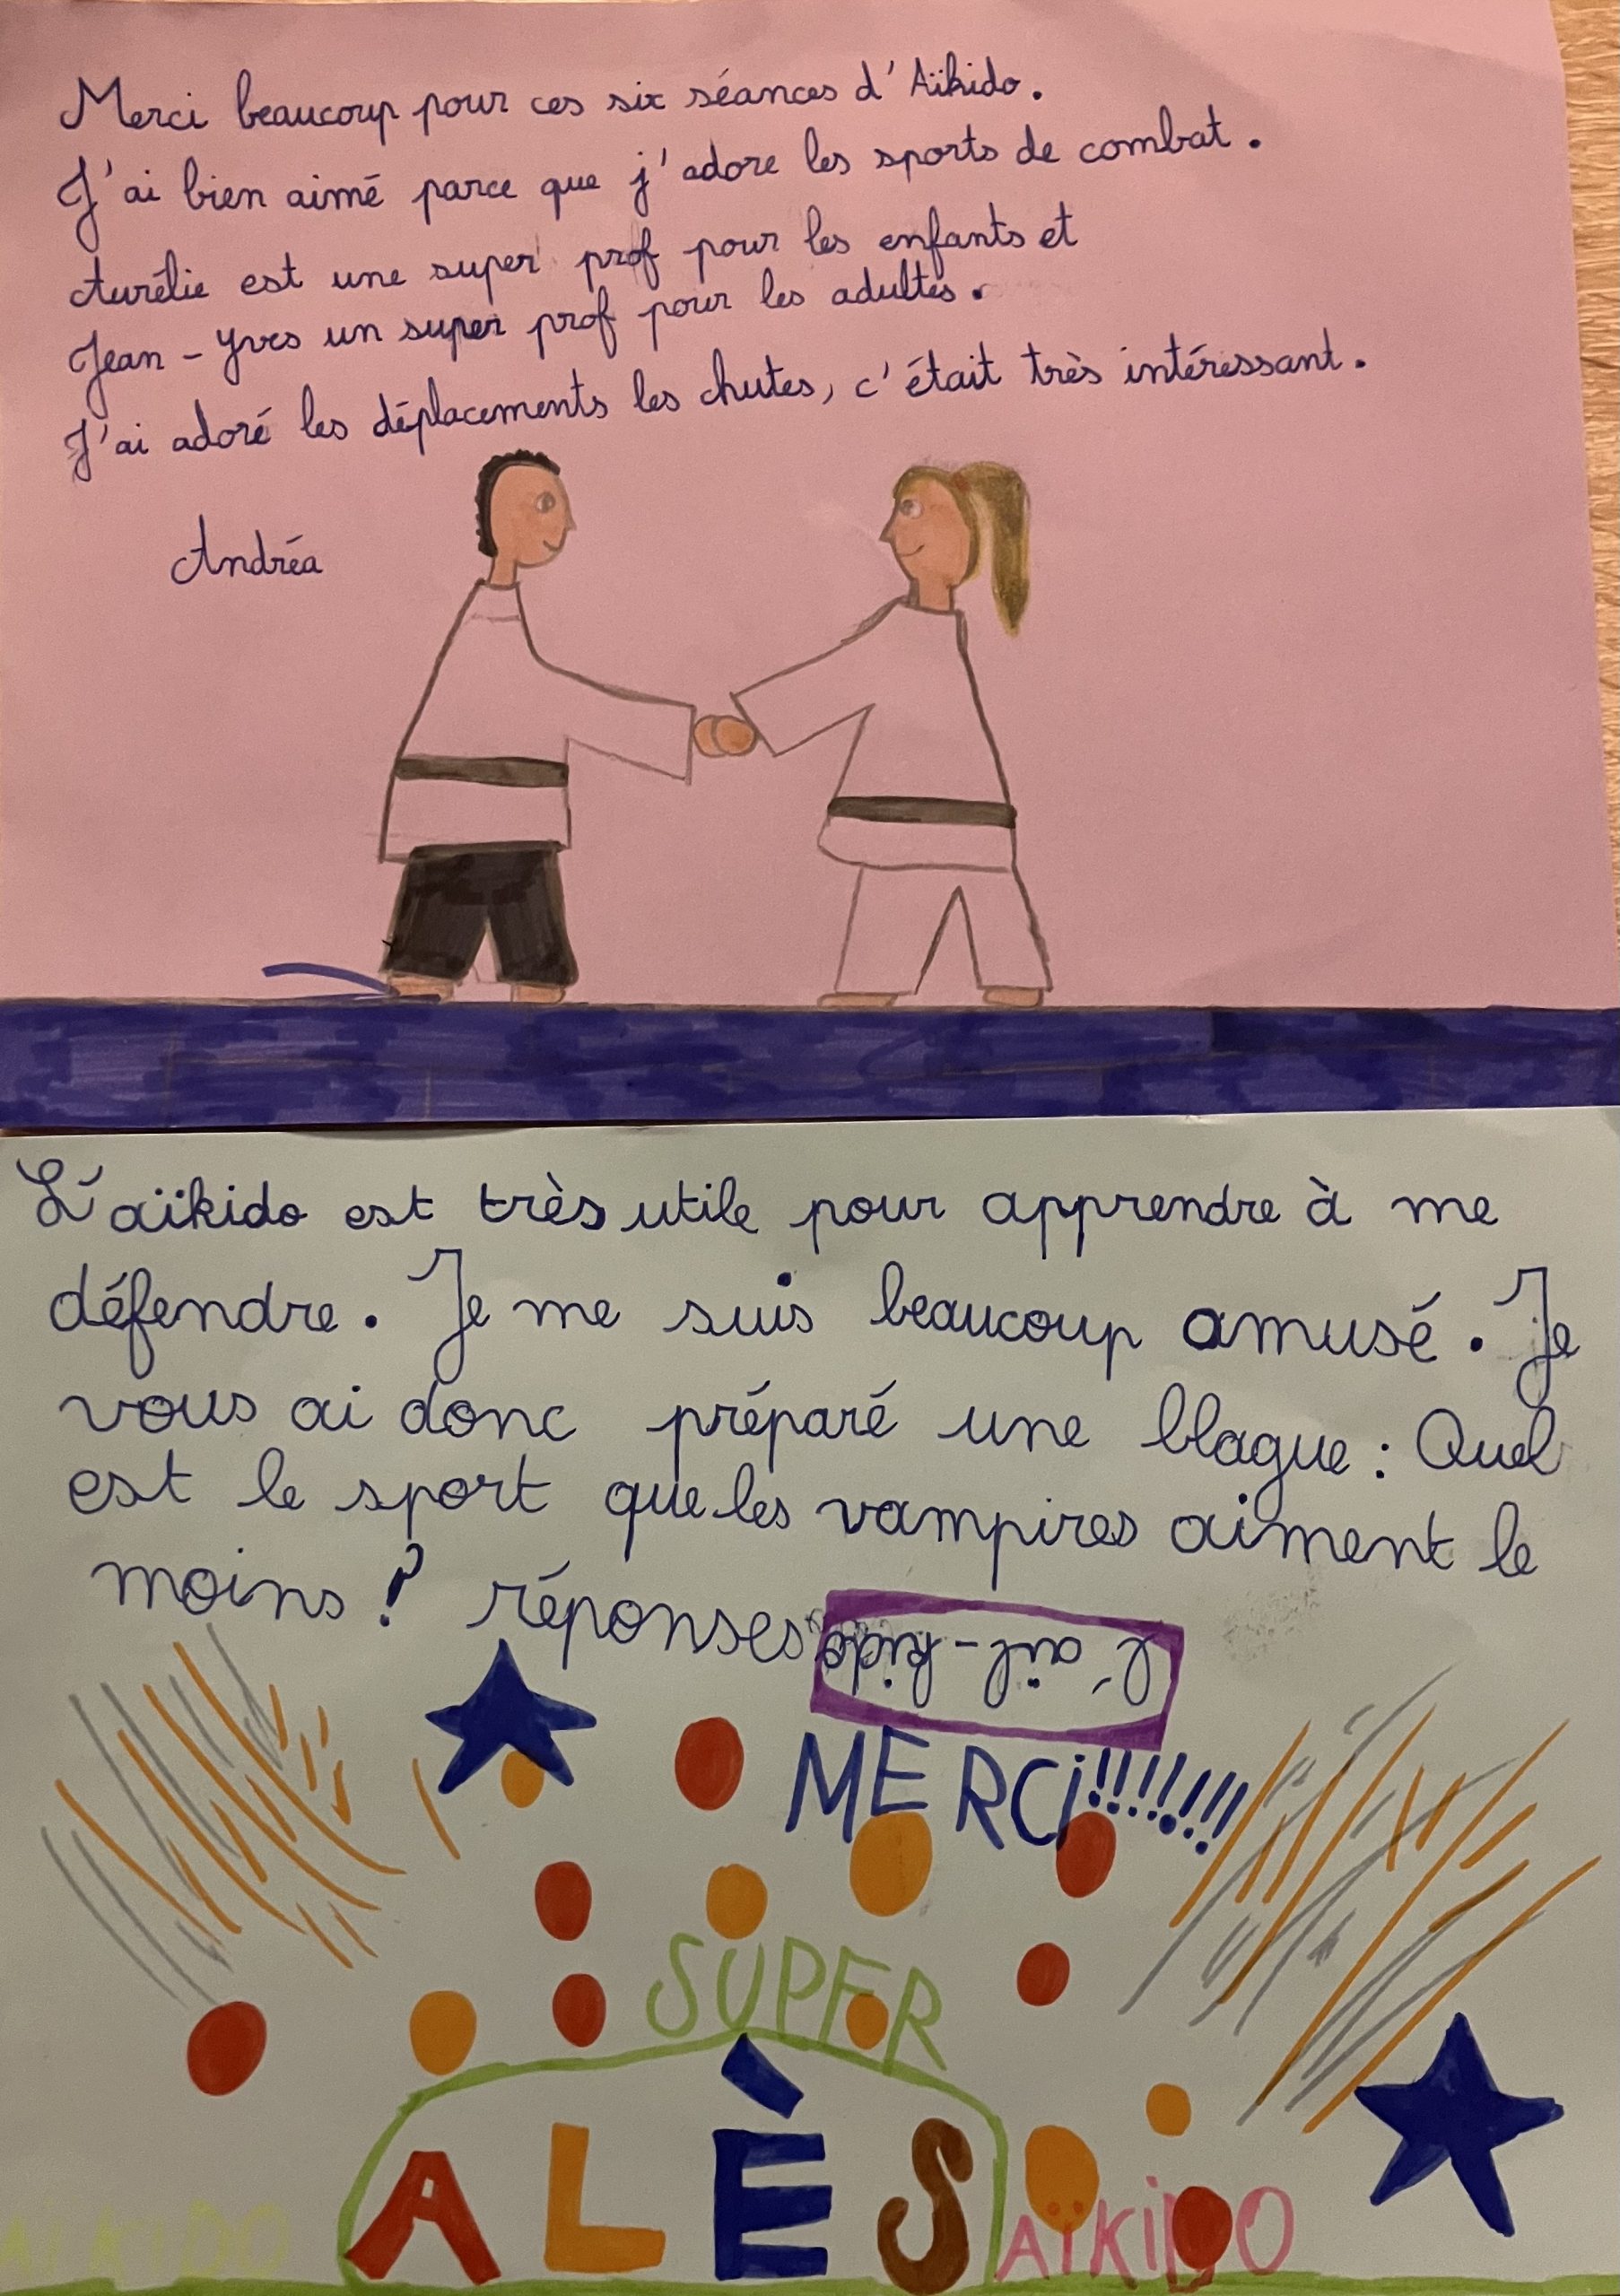 Merci beaucoup pour ces six séances d'Aïkido.
J'ai bien aimé parce que j'adore les sports de combat.
Aurélie est une super prof pour les enfants et
Jean-Yves un super prof pour les adultes.
J'ai adoré les déplacements les chutes, c'était très intéressant.
Andréa
L'aïkido est très utile pour apprendre à me
défendre. Je me suis beaucoup amusé. Je
vous ai donc préparé une blague : Quel
est le sport que les vampires aiment le
moins ? réponses
l'aïl-kido
MERCi!!!!!!!!
SUPER
ALÈS
AÏKiDO
AiKiDO